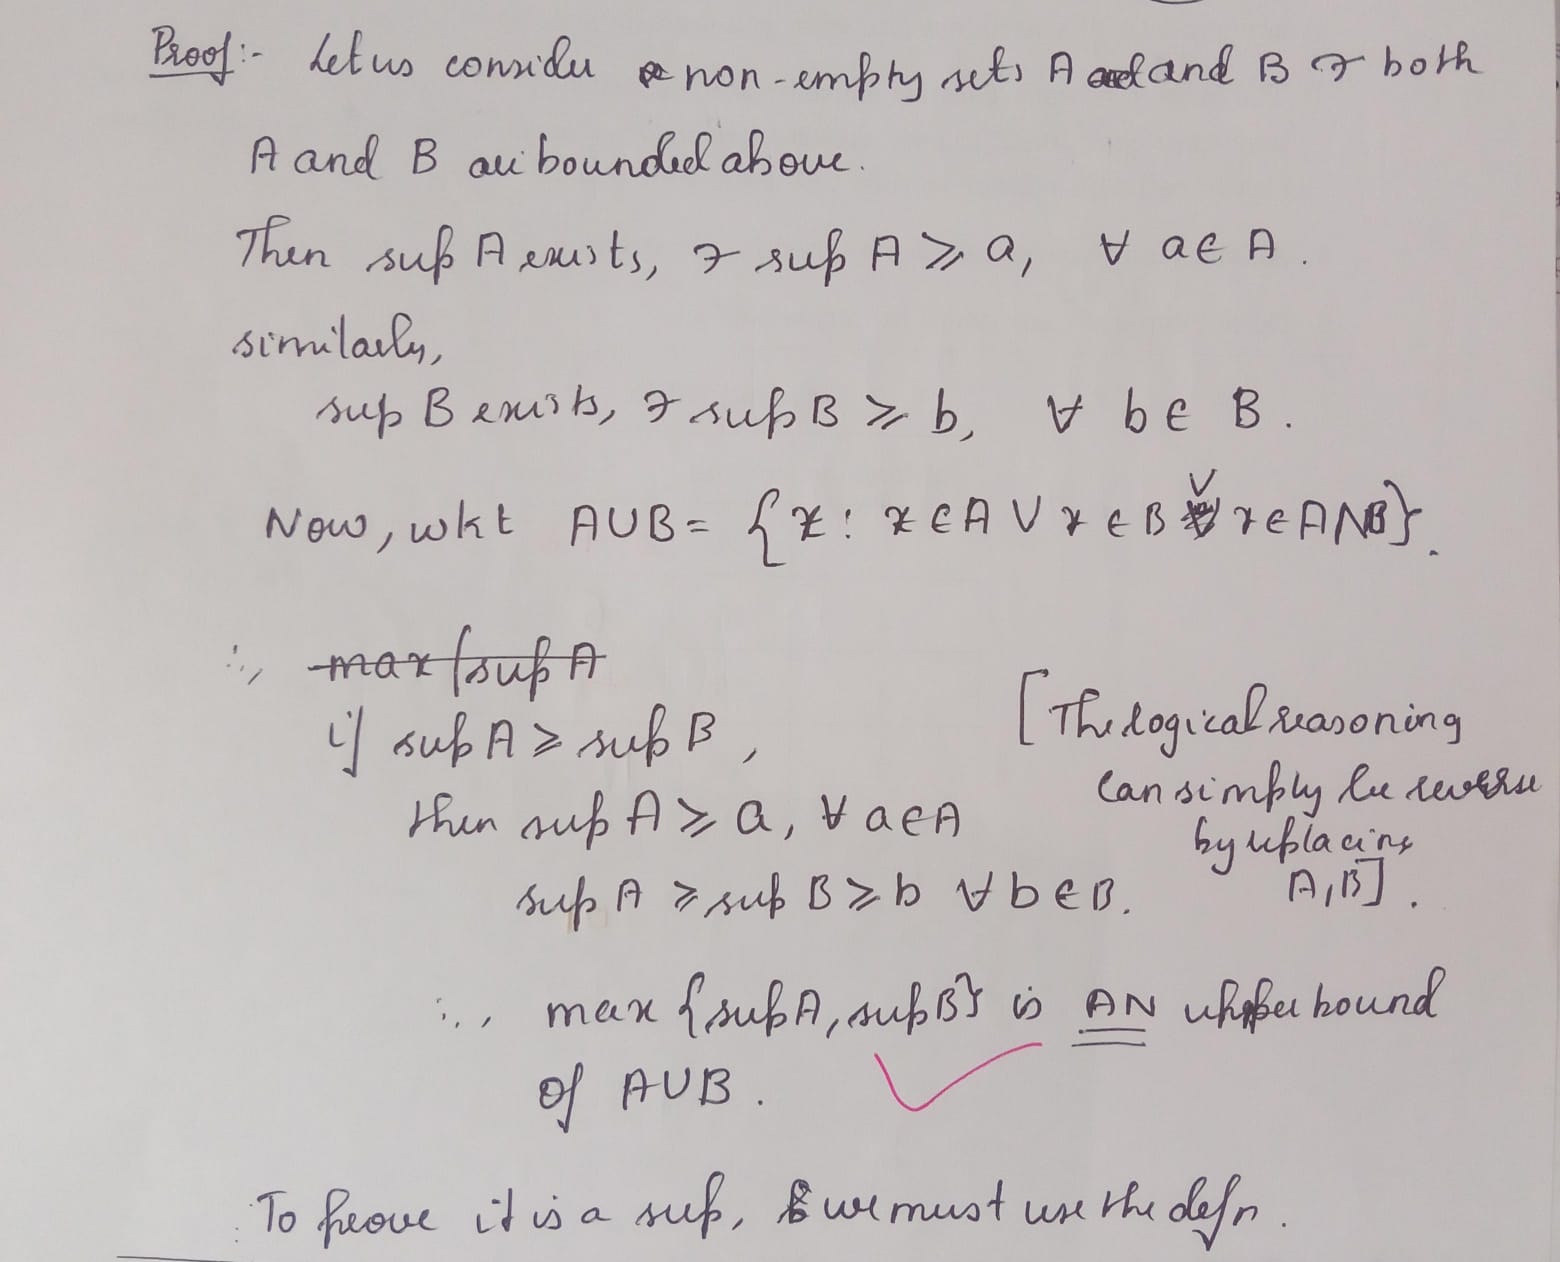 Proof:- Let us consider non-empty sets A and B & both
A and B are bounded above.
Then sup A exists, & sup A ≥ a, ∀ a ∈ A.
similarly,
sup B exists, & sup B ≥ b, ∀ b ∈ B.
Now, wkt A∪B = {x : x ∈ A ∨ x ∈ B ∨ x ∈ A∩B}.
∴, max{sup A
if sup A ≥ sup B,
then sup A ≥ a, ∀ a∈A
sup A ≥ sup B ≥ b ∀ b ∈ B.
[The logical reasoning
can simply be reverse
by replacing
A,B].
∴, max {sup A, sup B} is AN upper bound
of A∪B.
To prove it is a sup, we must use the defn.